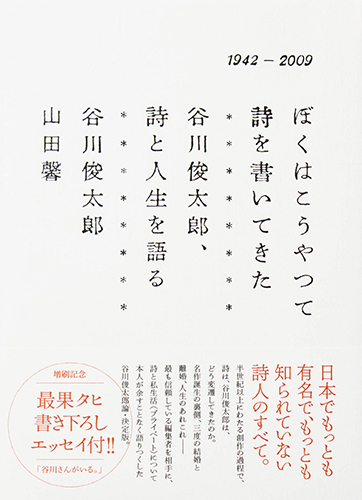 1942 – 2009
ぼくはこうやって
詩を書いてきた
* * * * * * * * *
谷川俊太郎、
詩と人生を語る
* * * * * * * * *
谷川俊太郎
山田馨
日本でもっとも
有名で、もっとも
知られていない
詩人のすべて。
半世紀以上にわたる創作の過程で、
詩は、谷川俊太郎は、
どう変遷してきたのか。
名作誕生の裏側、三度の結婚と
離婚、人生のあれこれ——
最も信頼している編集者を相手に、
詩と私生活（プライベート）について
本人が余すことなく語りつくした
谷川俊太郎論・決定版。
増刷記念
最果タヒ
書き下ろし
エッセイ付!!
「谷川さんがいる。」